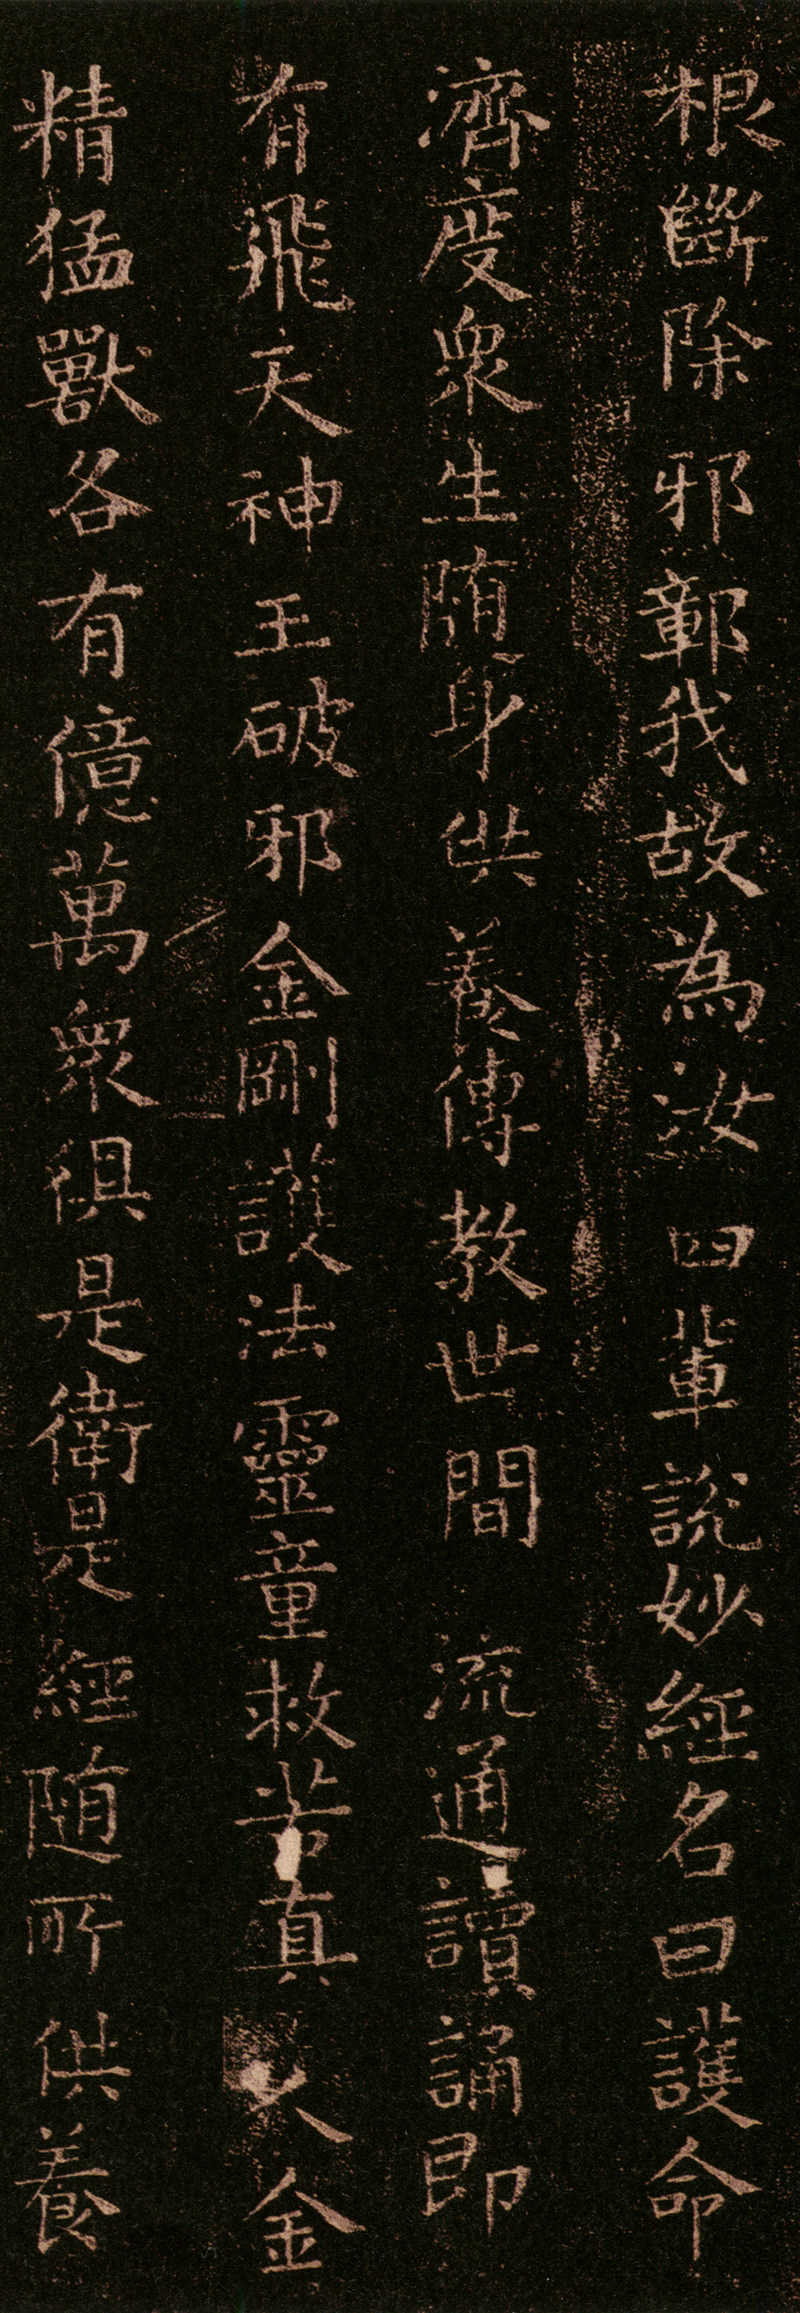 根斷除邪鄣我故為汝四輩說妙經名曰護命
濟度衆生随身供養傳教世間流通讀誦即
有飛天神王破邪金剛護法靈童救苦真人金
精猛獸各有億萬衆俱是衛是經随所供養